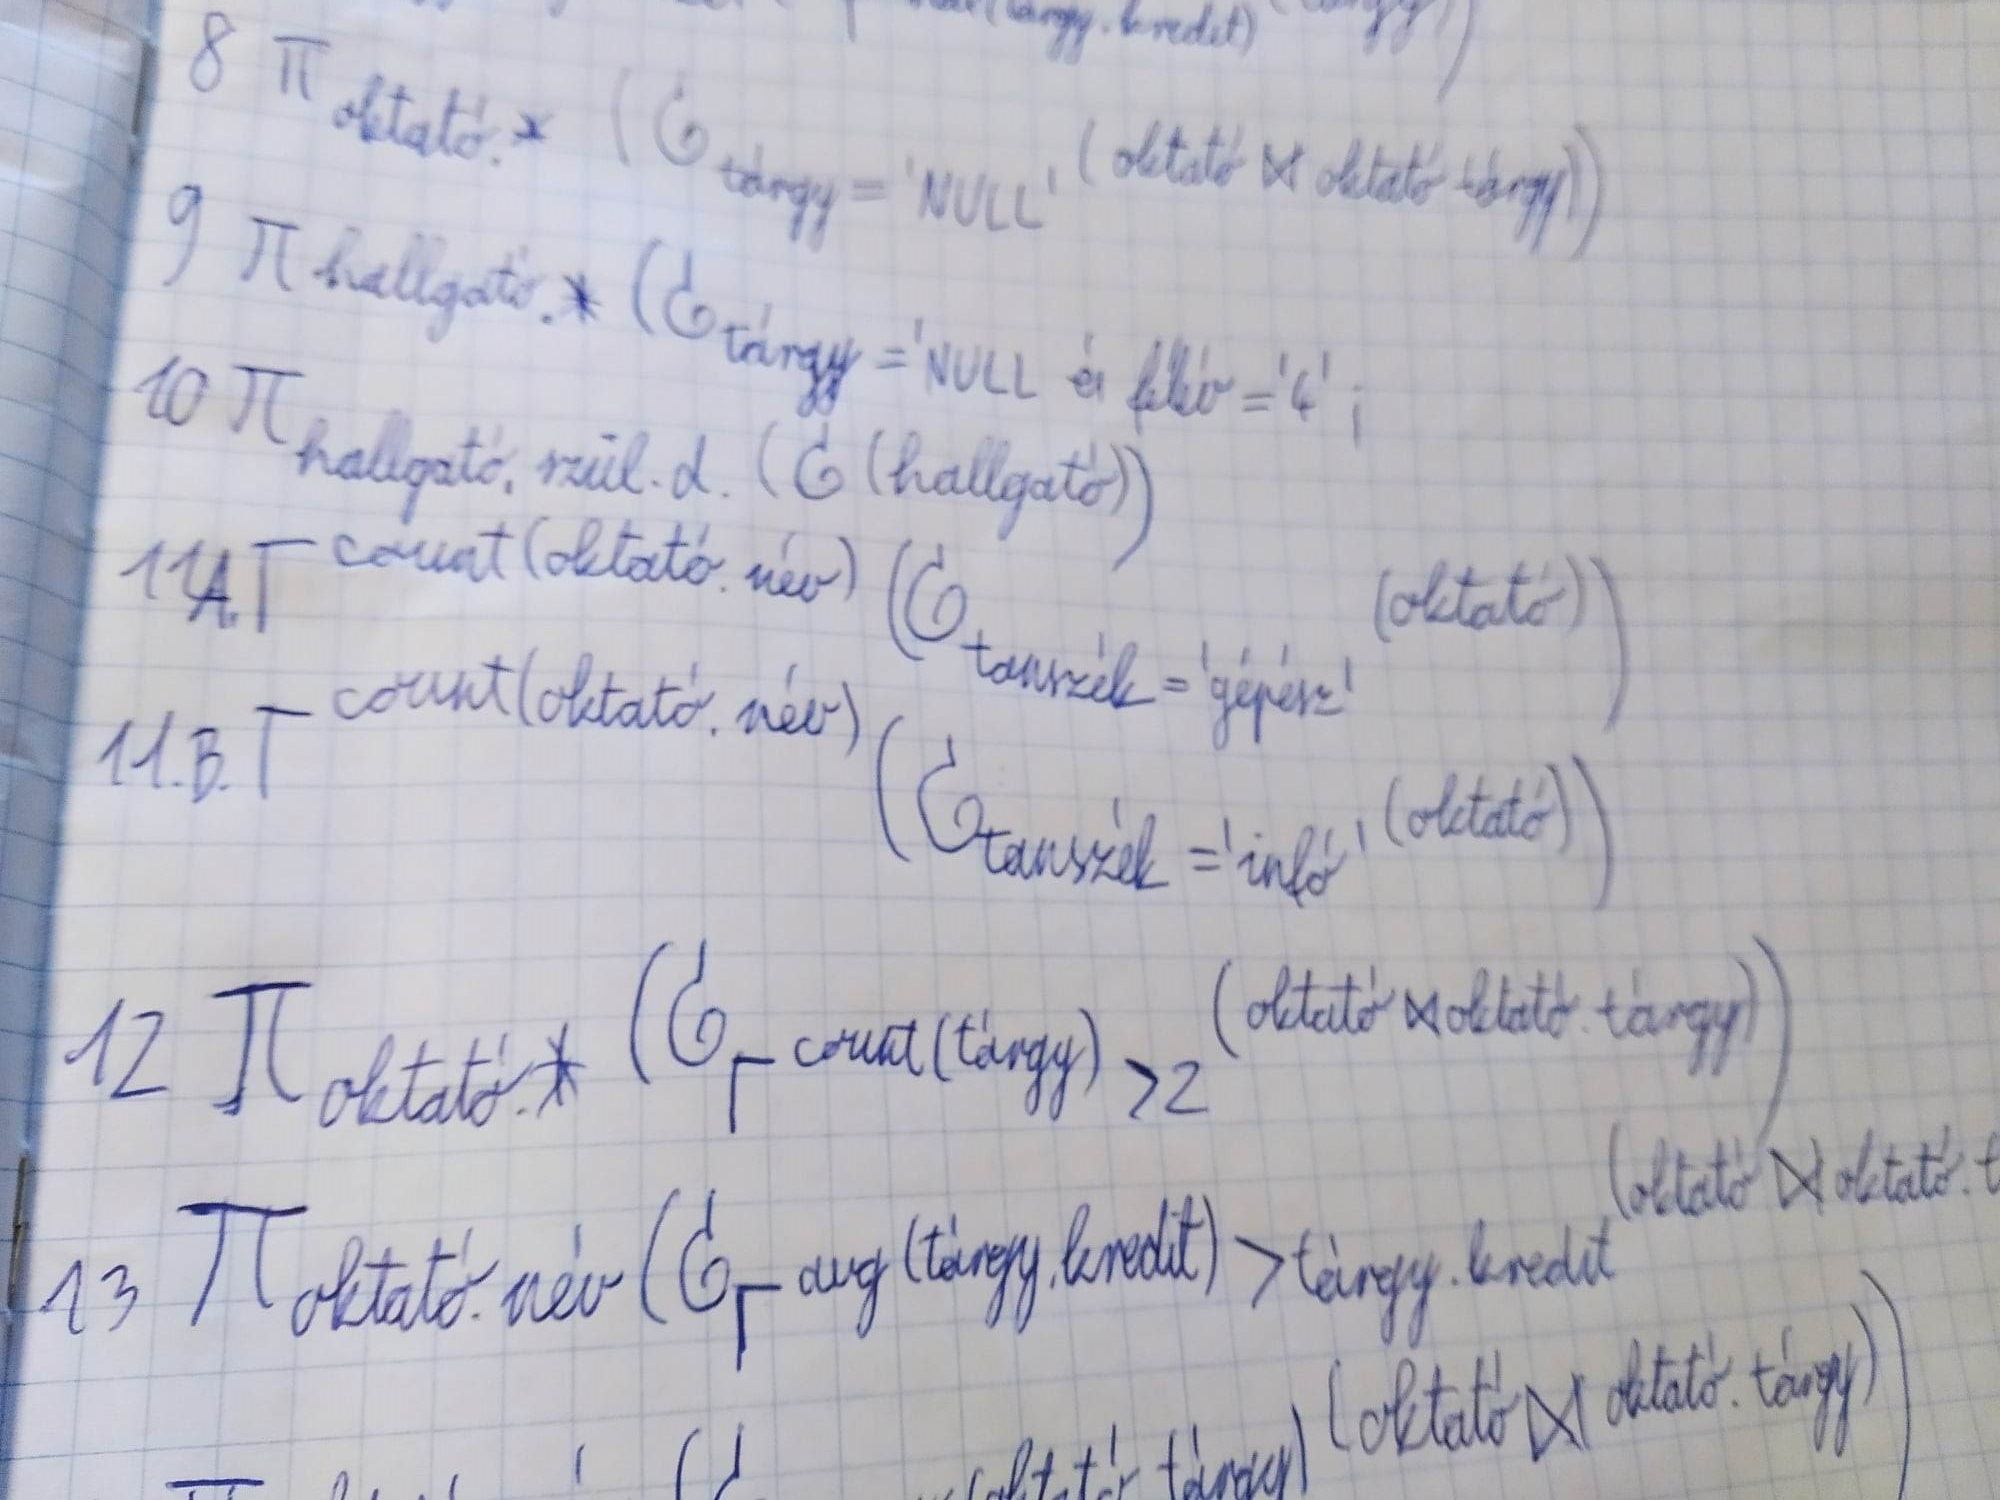 (tárgy.kredit) (tárgy))
8 π oktató.* (σ tárgy = 'NULL' (oktató ⋈ oktató tárgy))
9 π hallgató.* (σ tárgy = 'NULL és félév = '4' ;
10 π hallgató. szül. d. (σ (hallgató))
11A. Γ count(oktató.név) (σ tanszék = 'gépész' (oktató))
11.B. Γ count(oktató.név) (σ tanszék = 'infó' (oktató))
12 π oktató.* (σ Γ count(tárgy) >2 (oktató ⋈ oktató.tárgy))
13 π oktató.név (σ Γ avg (tárgy.kredit) > tárgy.kredit (oktató ⋈ oktató.t
π (σ (oktató.tárgy) (oktató ⋈ oktató.tárgy))